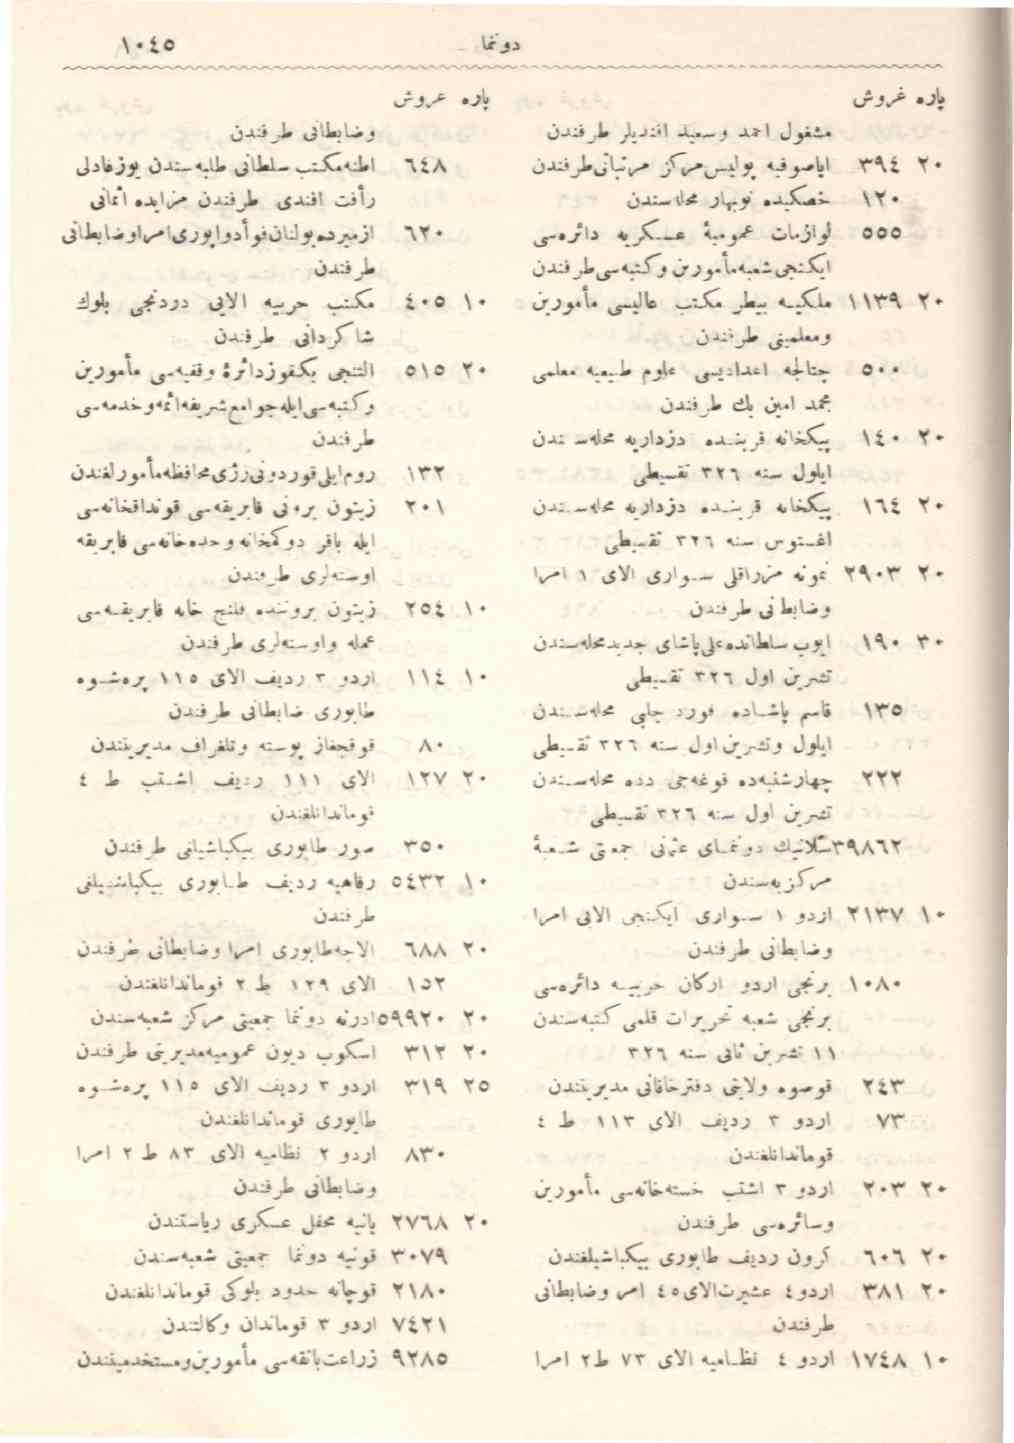 دوننما ١٠٤٥
پاره غروش
مشغول احمد وسعید افندیلر طرفندن
٢٠ ٣٩٤ ایاصوفیه پولیس مرکز مرتباتی طرفندن
١٢٠ خصکیده نوبهار محله‌سندن
٥٥٥ لوازمات عمومیهٔ عسکریه دائره‌سی
ایکنجی شعبه مأمورین وکتبه‌سی طرفندن
٢٠ ١١٣٩ ملکیه بیطر مکتب عالیسی مأمورین
ومعلمینی طرفندن
٥٠٠ چتالجه اعدادیسی علوم طبیعیه معلمی
محمد امین بك طرفندن
٢٠ ١٤٠ پیکخانه قربنده دزداریه محله‌سندن
ایلول سنه ٣٢٦ تقسیطی
٢٠ ١٦٤ پیکخانه قربنده دزداریه محله‌سندن
اغستوس سنه ٣٢٦ تقسیطی
٢٠ ٢٩٠٣ نمونه مزراقلی سواری الای ١ امرا
وضابطانی طرفندن
٣٠ ١٩٠ ایوب سلطانده علی پاشای جدید محله‌سندن
تشرین اول ٣٢٦ تقسیطی
١٣٥ قاسم پاشاده قورد چلبی محله‌سندن
ایلول وتشرین اول سنه ٣٢٦ تقسیطی
٢٢٢ چهارشنبه‌ده قوغه‌جی دده محله‌سندن
تشرین اول سنه ٣٢٦ تقسیطی
٣٩٨٦٢ سلانیك دوننمای عثمانی جمعیتی شعبهٔ
مرکزیه‌سندن
١٠ ٢١٣٧ اردو ١ سواری ایکنجی الایی امرا
وضابطانی طرفندن
١٠٨٠ برنجی اردو ارکان حربیه دائره‌سی
برنجی شعبه تحریرات قلمی کتبه‌سندن
١١ تشرین ثانی سنه ٣٢٦
٢٤٣ قوصوه ولایتی دفترخاقانی مدیریتندن
٧٣ اردو ٣ ردیف الای ١١٣ ط ٤
قوماندانلغندن
٢٠ ٢٠٣ اردو ٣ اشتب خسته‌خانه‌سی مأمورین
وسائره‌سی طرفندن
٢٠ ٦٠٦ کرون ردیف طابوری بیکباشیلغندن
٢٠ ٣٨١ اردو ٤ عشیرت الای ٤٥ امرا وضابطانی
طرفندن
١٠ ١٧٤٨ اردو ٤ نظامیه الای ٧٣ ط ٢ امرا
پاره غروش
وضابطانی طرفندن
٦٤٨ اطنه مکتب سلطانی طلبه‌سندن یوزغادلی
رأفت افندی طرفندن مزایده اثمانی
٦٢٠ ازمیرده بولنان فوأد واپوری امرا وضابطانی
طرفندن
١٠ ٤٠٥ مکتب حربیه الایی دردنجی بلوك
شاکردانی طرفندن
٢٠ ٥١٥ التنجی بکقوز دائرهٔ وقفیه‌سی مأمورین
وکتبه‌سی ایله جوامع شریفه ائمه وخدمه‌سی
طرفندن
١٣٢ روم ایلی قوردونی رژی محافظه مأمورلغندن
٢٠١ زیتون برونی فابریقه‌سی قونداقخانه‌سی
ایله باقر دوکمخانه وحده‌خانه‌سی فابریقه
اوسته‌لری طرفندن
١٠ ٢٥٤ زیتون بروننده فلنج خانه فابریقه‌سی
عمله واوسته‌لری طرفندن
١٠ ١١٤ اردو ٣ ردیف الای ١١٥ پره‌شوه
طابوری ضابطانی طرفندن
٨٠ قوقجغاز پوسته وتلغراف مدیریتندن
٢٠ ١٢٧ الای ١١١ ردیف اشتب ط ٤
قوماندانلغندن
٣٥٠ صور طابوری بیکباشیلغی طرفندن
١٠ ٥٤٣٢ رفاهیه ردیف طابوری بیکباشیلغی
طرفندن
٢٠ ٦٨٨ الاجه طابوری امرا وضابطانی طرفندن
١٥٢ الای ١٢٩ ط ٢ قوماندانلغندن
٢٠ ٥٩٩٢٠ ادرنه دوننما جمعیتی مرکز شعبه‌سندن
٢٠ ٣١٢ اسکوب دیون عمومیه مدیریتی طرفندن
٢٥ ٣١٩ اردو ٣ ردیف الای ١١٥ پره‌شوه
طابوری قوماندانلغندن
٨٣٠ اردو ٢ نظامیه الای ٨٣ ط ٢ امرا
وضابطانی طرفندن
٢٠ ٢٧٦٨ یانیه محفل عسکری ریاستندن
٣٠٧٩ قونیه دوننما جمعیتی شعبه‌سندن
٢١٨٠ قوچانه حدود بلوکی قوماندانلغندن
٧٤٢١ اردو ٣ قوماندان وکالتندن
٩٢٨٥ زراعت بانقه‌سی مأمورین ومستخدمیندن